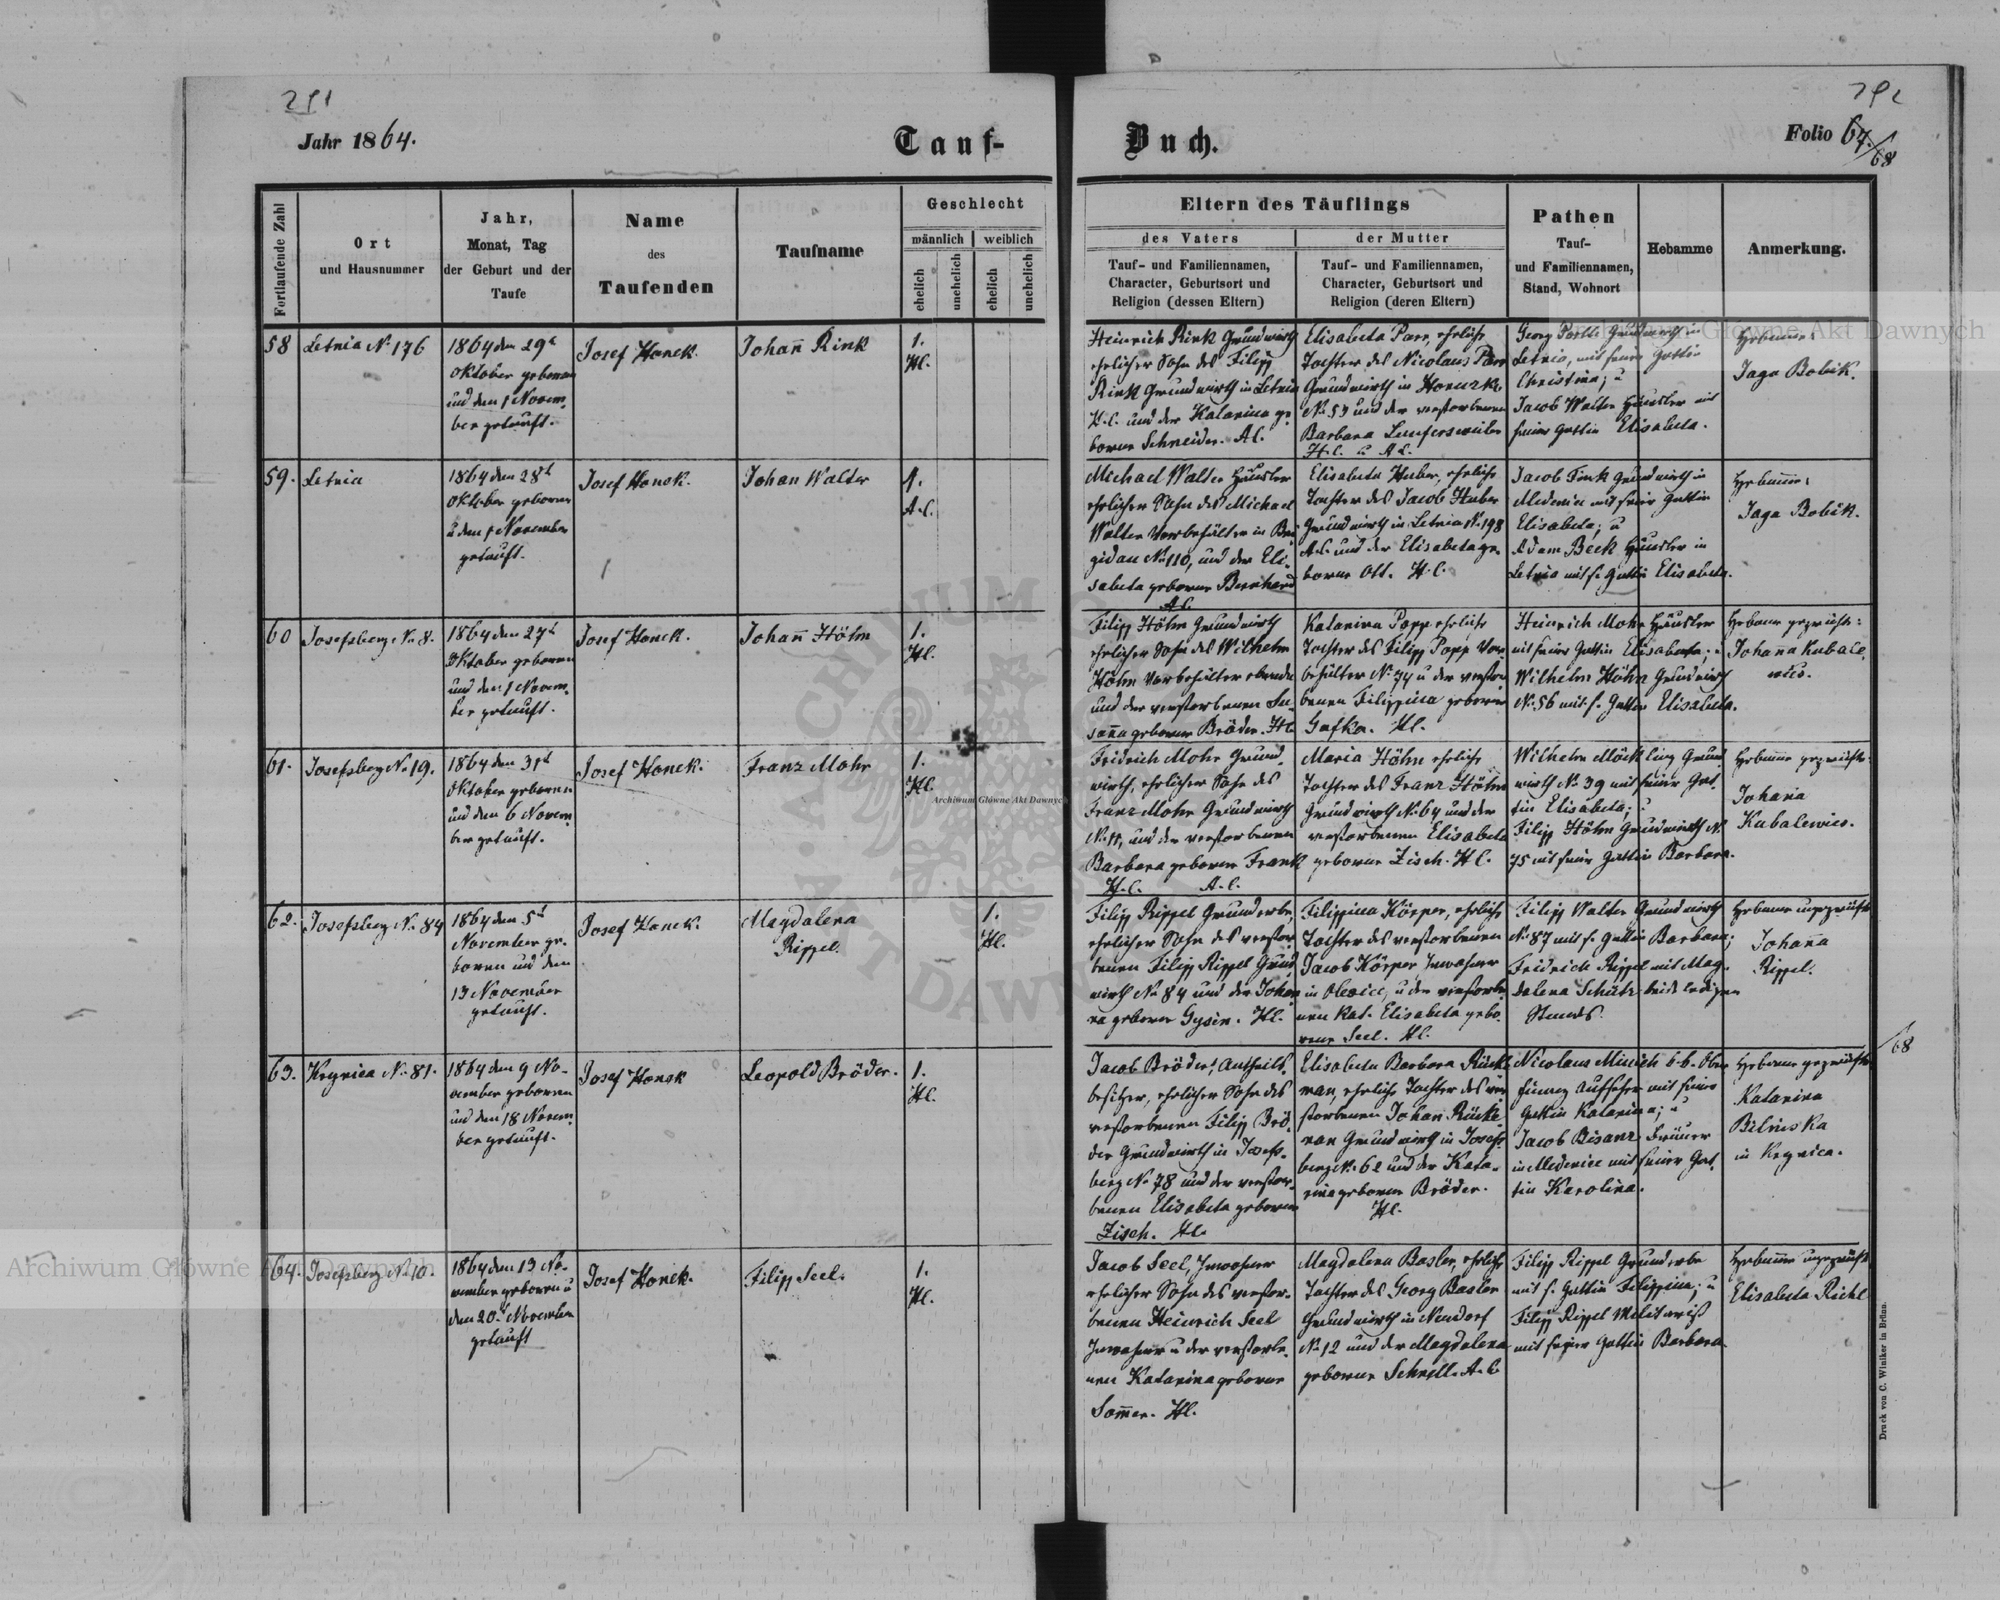 291
292
Jahr 1864.
Tauf-
Buch.
Folio 67/68
Fortlaufende Zahl
Ort
und Hausnummer
Jahr,
Monat, Tag
der Geburt und der
Taufe
Name
des
Taufenden
Taufname
Geschlecht
männlich
weiblich
ehelich
unehelich
ehelich
unehelich
Eltern des Täuflings
des Vaters
Tauf- und Familiennamen,
Character, Geburtsort und
Religion (dessen Eltern)
der Mutter
Tauf- und Familiennamen,
Character, Geburtsort und
Religion (deren Eltern)
Pathen
Tauf-
und Familiennamen,
Stand, Wohnort
Hebamme
Anmerkung.
58
Letnia No 176
1864 den 29t
Oktober geboren
und den 1 Novem-
ber getauft.
Josef Honek.
Johañ Rink
1.
Hl.
Heinrich Rink Grundwirth
ehelicher Sohn des Filipp
Rink Grundwirth in Letnia
H.C. und der Katarina ge-
borne Schneider. A.C.
Elisabeta Parr, eheliche
Tochter des Nicolaus Parr
Grundwirth in
No 53 und der verstorbenen
Barbara
H.C. u A.C.
Georg Grundwirth in
Letnia, mit seiner Gattin
Christina; u
Jacob Walter Häusler mit
seiner Gattin Elisabeta.
Hebamme:
Jaga Bobik.
59.
Letnia
1864 den 28t
Oktober geboren
u den 1 November
getauft.
Josef Honek.
Johan Walter
1.
A.C.
Michael Walter Häusler
ehelicher Sohn des Michael
Walter Vorbehälter in Bri-
gidau No 110, und der Eli-
sabeta geborne Bernhard
A.C.
Elisabeta Huber, eheliche
Tochter des Jacob Huber
Grundwirth in Letnia No 198
A.C. und der Elisabeta ge-
borne Ott. H.C.
Jacob Fink Grundwirth in
Medenice mit seiner Gattin
Elisabeta; u
Adam Beck Häusler in
Letnia mit s. Gattin Elisabeta.
Hebamme:
Jaga Bobik.
60
Josefsberg No 8.
1864 den 27t
Oktober geboren
und den 1 Novem-
ber getauft.
Josef Honek.
Johañ Höhn
1.
Hl.
Filipp Höhn Grundwirth
ehelicher Sohn des Wilhelm
Höhn Vorbehälter
und der verstorbenen Su-
sañna geborne Bröder. Hl.
Katarina Popp eheliche
Tochter des Filipp Popp Vor-
behälter No 74 u der verstor-
benen Filippina geborne
Gafka. Hl.
Heinrich Mohr Häusler
mit seiner Gattin Elisabeta; u
Wilhelm Höhn Grundwirth
No 56 mit s. Gattin Elisabeta.
Hebamme geprüfte:
Johana Kubale-
wics.
61.
Josefsberg No 19.
1864 den 31t
Oktober geboren
und den 6 Novem-
ber getauft.
Josef Honek.
Franz Mohr
1.
Hl.
Fridrich Mohr Grund-
wirth, ehelicher Sohn des
Franz Mohr Grundwirth
No 11, und der verstorbenen
Barbara geborne Frank
H.C. A.C.
Maria Höhn eheliche
Tochter des Franz Höhn
Grundwirth No 64 und der
verstorbenen Elisabeta
geborne Zisch. H.C.
Wilhelm Möckling Grund-
wirth No 39 mit seiner Gat-
tin Elisabeta; u
Filipp Höhn Grundwirth No
75 mit seiner Gattin Barbara.
Hebamme geprüfte:
Johana
Kubalewics.
62.
Josefsberg No 84
1864 den 5t
November ge-
boren und den
13 November
getauft.
Josef Honek.
Magdalena
Rippel.
1.
Hl.
Filipp Rippel Grunderbe,
ehelicher Sohn des verstor-
benen Filipp Rippel Grund-
wirth No 84 und der Joha-
na geborne Gysin. Hl.
Filippina Körper, eheliche
Tochter des verstorbenen
Jacob Körper, Inwohner
in Olexice, u der verstorbe-
nen Kat. Elisabeta gebo-
rene Seel. Hl.
Filipp Walter Grundwirth
No 87 mit s. Gattin Barbara;
Fridrich Rippel mit Mag-
dalena Schütz beide ledigen
Standes.
Hebamme ungeprüfte
Johaña
Rippel.
68
63.
Krynica No 81.
1864 den 9 No-
vember geboren
und den 18 Novem-
ber getauft.
Josef Honek
Leopold Bröder.
1.
Hl.
Jacob Bröder, Antheils-
besitzer, ehelicher Sohn des
verstorbenen Filipp Brö-
der Grundwirth in Josefs-
berg No 78 und der verstor-
benen Elisabeta geborne
Zisch. Hl.
Elisabeta Barbara Rück-
man, eheliche Tochter des ver-
storbenen Johan Rück-
man Grundwirth in Josefs-
berg No 62 und der Kata-
rina geborne Bröder.
Hl.
Nicolaus Minich k.k. Ober-
finanz Aufseher mit seiner
Gattin Katarina; u
Jacob Bisanz Bräuer
in Medenice mit seiner Gat-
tin Karolina.
Hebamme geprüfte
Katarina
Bilinska
in Krynica.
64.
Josefsberg No 10.
1864 den 13 No-
vember geboren u
den 20t November
getauft
Josef Honek.
Filipp Seel.
1.
Hl.
Jacob Seel, Inwohner
ehelicher Sohn des verstor-
benen Heinrich Seel
Inwohner u der verstorbe-
nen Katarina geborne
Som̃er. Hl.
Magdalena Basler, eheliche
Tochter des Georg Basler
Grundwirth in Neudorf
No 12 und der Magdalena
geborne Schnell. A.C.
Filipp Rippel Grunderbe
mit s. Gattin Filippina; u
Filipp Rippel
mit seiner Gattin Barbara.
Hebamme ungeprüfte
Elisabeta Richl
Druck von C. Winiker in Brünn.
Archiwum Główne Akt Dawnych
Archiwum Główne Akt Dawnych
Archiwum Główne Akt Dawnych
ARCHIWUM
AKT DAWN